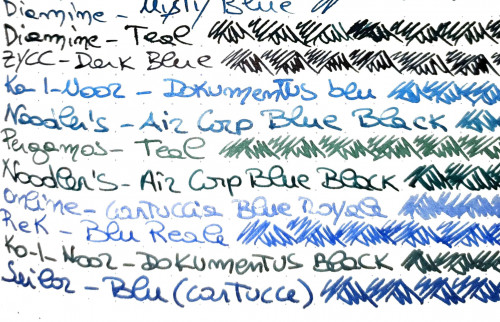 Diamine - Misty Blue
Diamine - Teal
ZYCC - Dark Blue
Ko-I-Noor - Dokumentus blu
Noodler's - Air Corp Blue Black
Pergamos - Teal
Noodler's - Air Corp Blue Black
Online - cartuccia Blue Royale
ReK - Blu Reale
Ko-I-Noor - Dokumentus Black
Sailor - Blu (cartucce)